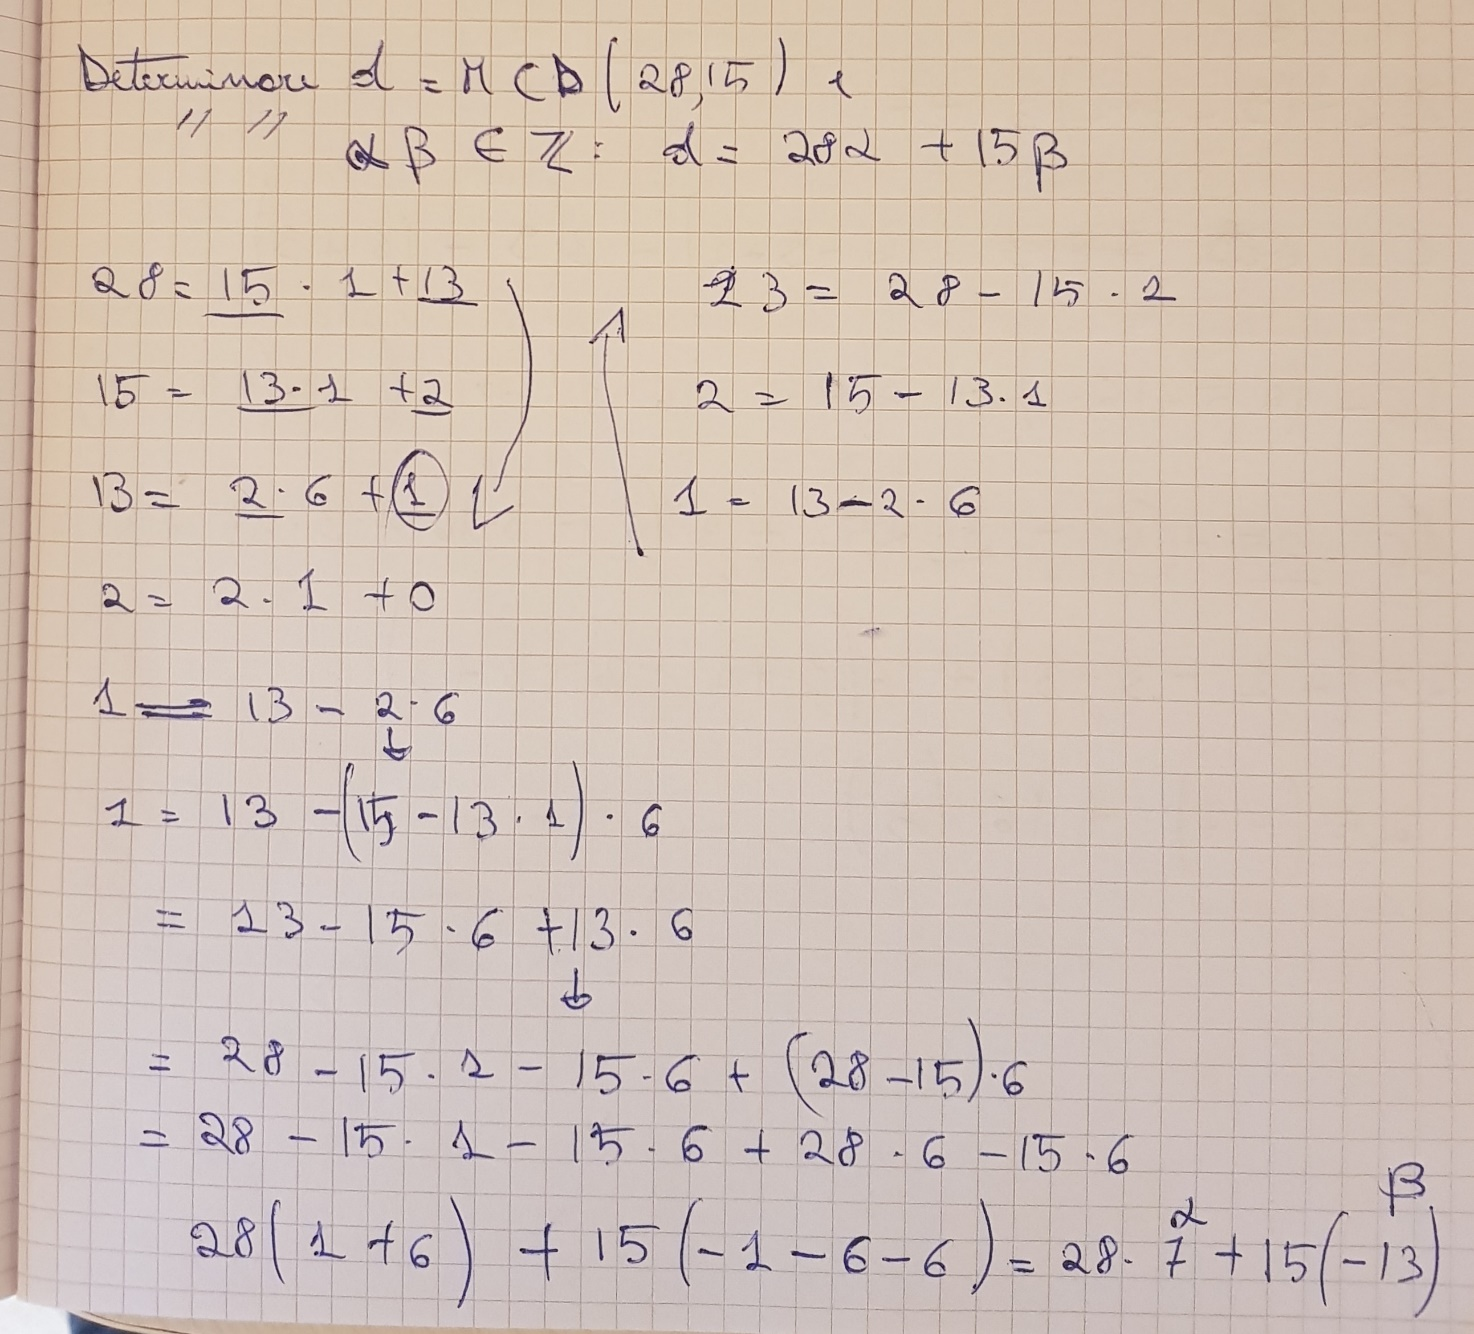 Determinare d = MCD (28,15) e
" " α β ∈ ℤ : d = 28α + 15β
28 = 15 · 1 + 13
13 = 28 - 15 · 1
15 = 13 · 1 + 2
2 = 15 - 13 · 1
13 = 2 · 6 + 1
1 = 13 - 2 · 6
2 = 2 · 1 + 0
1 = 13 - 2 · 6
↓
1 = 13 - (15 - 13 · 1) · 6
= 13 - 15 · 6 + 13 · 6
↓
= 28 - 15 · 1 - 15 · 6 + (28 - 15) · 6
= 28 - 15 · 1 - 15 · 6 + 28 · 6 - 15 · 6
α β
28 (1 + 6) + 15 (-1 - 6 - 6) = 28 · 7 + 15 (-13)